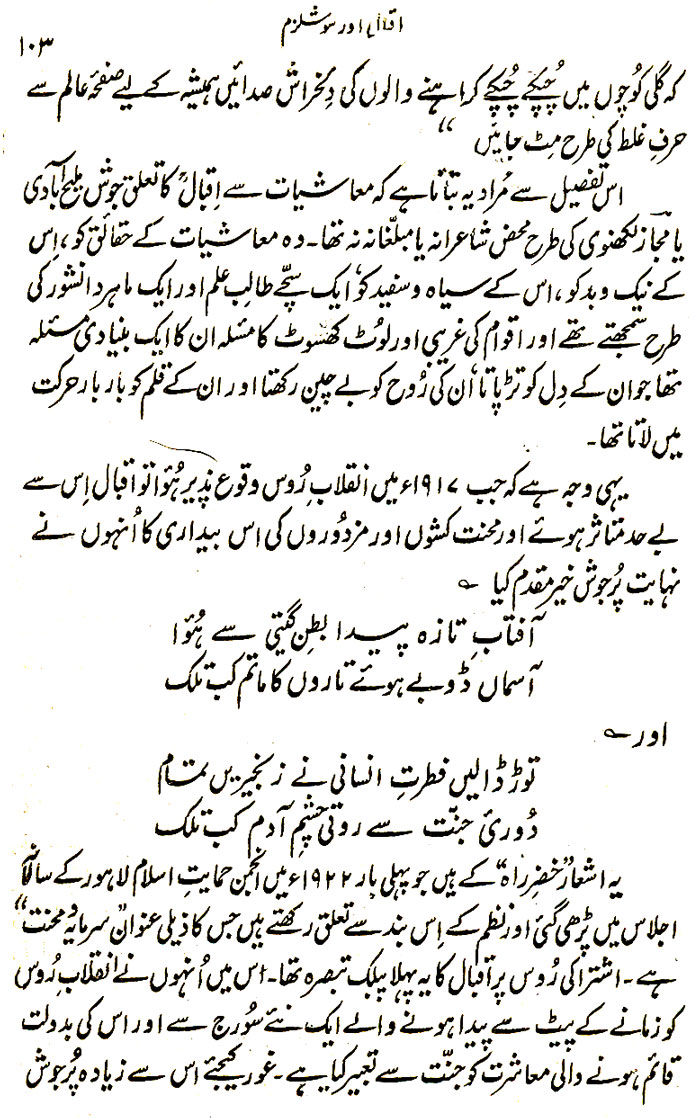 اقبال اور سوشلزم
۱۰۳
کہ گلی کوچوں میں چُپکے چُپکے کراہنے والوں کی دلخراش صدائیں ہمیشہ کے لیے صفحۂ عالم سے
حرفِ غلط کی طرح مِٹ جائیں"
اس تفصیل سے مُراد یہ بتانا ہے کہ معاشیات سے اِقبالؒ کا تعلق جوش ملیح آبادی
یا مجاز لکھنوی کی طرح محض شاعرانہ یا مبلّغانہ نہ تھا۔ وہ معاشیات کے حقائق کو، اِس
کے نیک و بد کو، اس کے سیاہ و سفید کو ایک سچّے طالبِ علم اور ایک ماہر دانشور کی
طرح سمجھتے تھے اور اقوام کی غریبی اور لُوٹ کھسُوٹ کا مسئلہ ان کا ایک بنیادی مسئلہ
تھا جو ان کے دِل کو تڑپاتا اُن کی رُوح کو بے چین رکھتا اور ان کے قلم کو بار بار حرکت
میں لاتا تھا۔
یہی وجہ ہے کہ جب ۱۹۱۷ء میں انقلابِ رُوس وقوع پذیر ہُوا تو اقبال اِس سے
بے حد متاثر ہوئے اور محنت کشوں اور مزدُوروں کی اس بیداری کا اُنہوں نے
نہایت پُرجوش خیر مقدم کیا ؎
آفتابِ تازہ پیدا بطنِ گیتی سے ہُوا
آسماں ڈوبے ہوئے تاروں کا ماتم کب تلک
اور ؎
توڑ ڈالیں فطرتِ انسانی نے زنجیریں تمام
دُوریٔ جنّت سے روتی چشمِ آدم کب تلک
یہ اشعار "خضرِ راہ" کے ہیں جو پہلی بار ۱۹۲۲ء میں انجمن حمایتِ اسلام لاہور کے سالانہ
اجلاس میں پڑھی گئی اور نظم کے اِس بند سے تعلق رکھتے ہیں جس کا ذیلی عنوان "سرمایہ و محنت"
ہے۔ اشتراکی رُوس پر اقبال کا یہ پہلا پبلک تبصرہ تھا۔ اس میں اُنہوں نے انقلابِ رُوس
کو زمانے کے پیٹ سے پیدا ہونے والے ایک نئے سُورج سے اور اس کی بدولت
قائم ہونے والی معاشرت کو جنّت سے تعبیر کیا ہے۔ غور کیجئے اس سے زیادہ پُرجوش